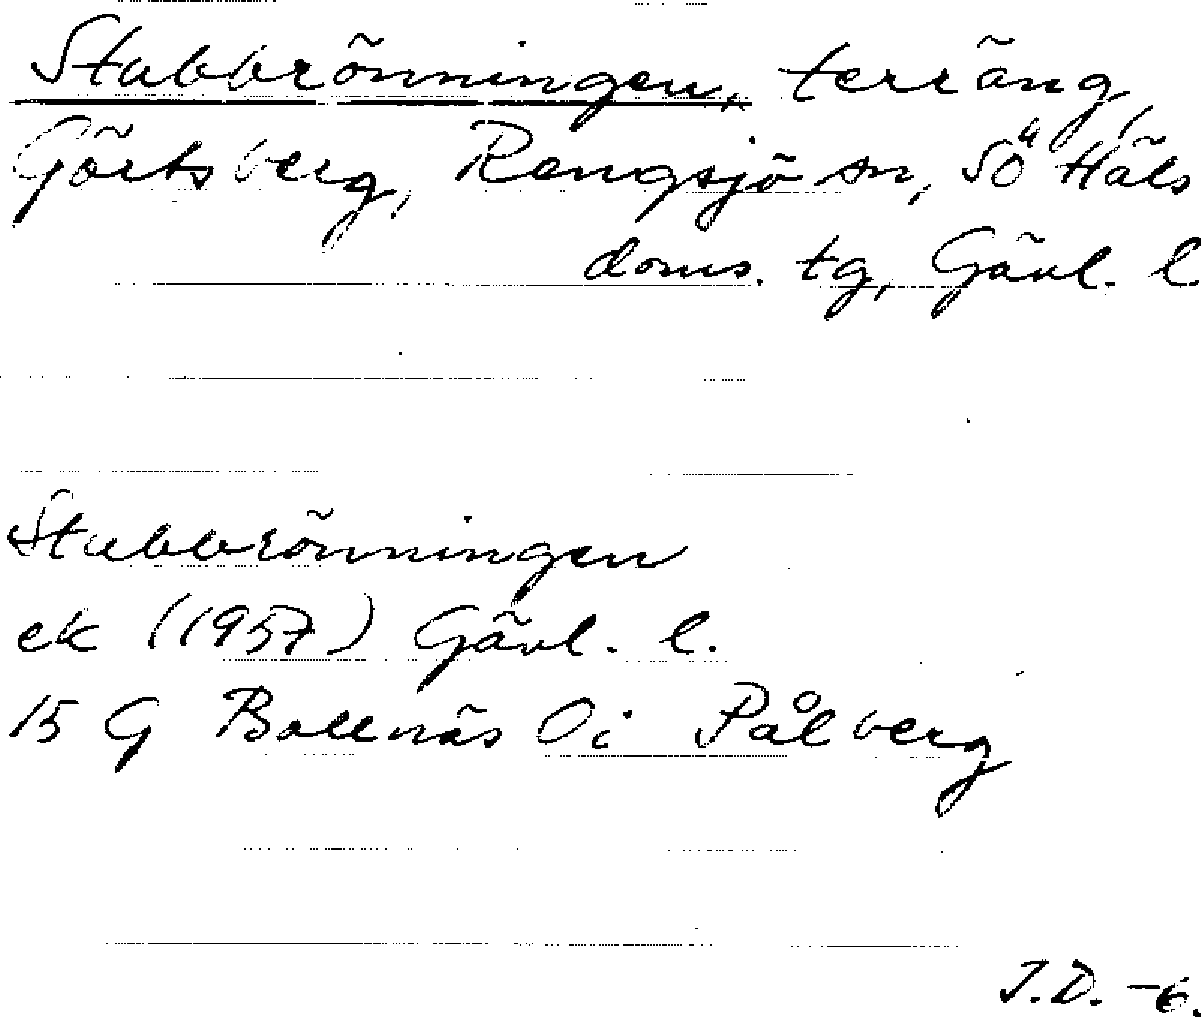 Stabbrönningen, terräng,
Görtsberg, Rengsjö sn, SÖ Häls
doms. tg, Gävl. l
Stabbrönningen
ek (1957) Gävl. l.
15 G Bollnäs Oi Pålberg
J.D. -6.